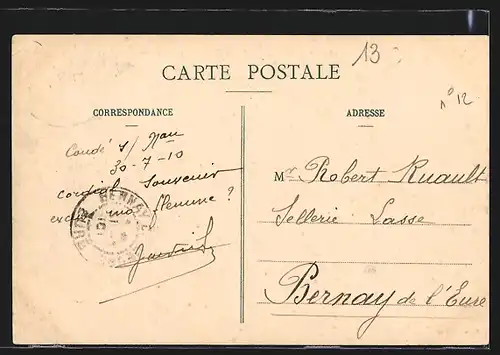 13
CARTE POSTALE
n° 12
CORRESPONDANCE
Condé s/
30-7-10
cordial Souvenir
flemme ?
BERNAY
EURE
ADRESSE
Mr Robert Ruault
Sellerie Lasse
Bernay de l'Eure